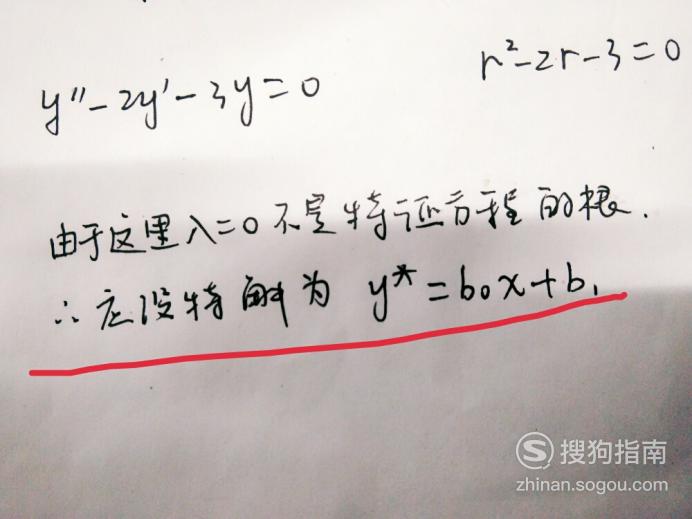 y''-2y'-3y=0
r²-2r-3=0
由于这里λ=0不是特证方程的根.
∴应设特解为 y*=b₀x+b₁
搜狗指南
zhinan.sogou.com